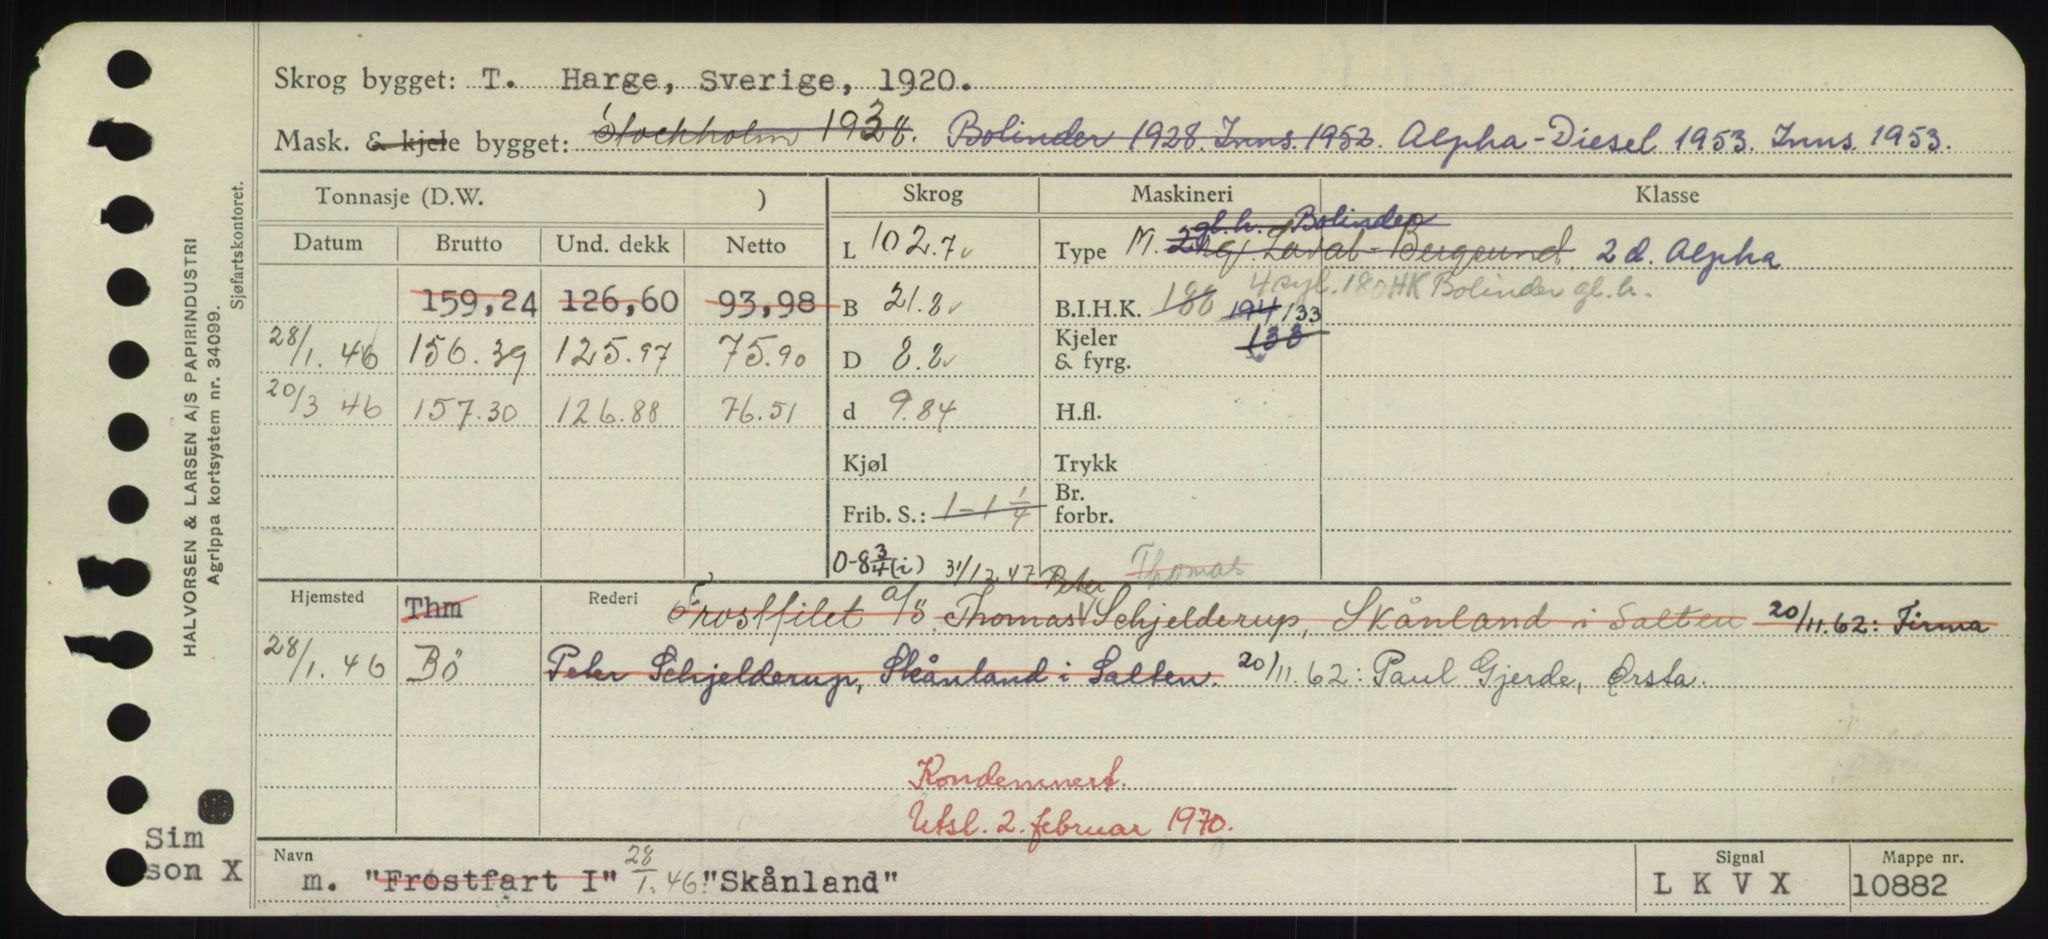 Skrog bygget: T. Harge, Sverige, 1920.
Mask. & kjele bygget: Stockholm 1938. Bolinder 1928. Inns. 1952. Alpha-Diesel 1953. Inns. 1953.
Tonnasje (D.W. )
Skrog
Maskineri
Klasse
Datum Brutto Und. dekk Netto
L 102.7
Type M. gl.h. Bolinder
Laval-Bergsund. 2 d. Alpha
159,24 126,60 93,98
B 21.8
B.I.H.K. 188 194/133
4 syl. 180 HK Bolinder gl.h.
28/1. 46 156.39 125.97 75.90
D 8.8
Kjeler & fyrg. 133
20/3 46 157.30 126.88 76.51
d 9.84
H.fl.
Kjøl
Trykk
Frib. S.: 1-1 1/4
Br. forbr.
0-8 3/4 (i) 31/12.47
Peter Thomas
Hjemsted Thm
Rederi Frostfilet a/s. Thomas Schjelderup, Skånland i Salten 20/11.62: Firma
28/1. 46 Bö Peter Schjelderup, Skånland i Salten. 20/11.62: Paul Gjerde, Ørsta.
Kondemnert.
Utsl. 2. februar 1970.
Navn
m. "Frostfart I" 28/1. 46. "Skånland"
Signal
L K V X
Mappe nr.
10882
Sim
son X
HALVORSEN & LARSEN A/S PAPIRINDUSTRI
Agrippa kortsystem nr. 34099.
Sjøfartskontoret.